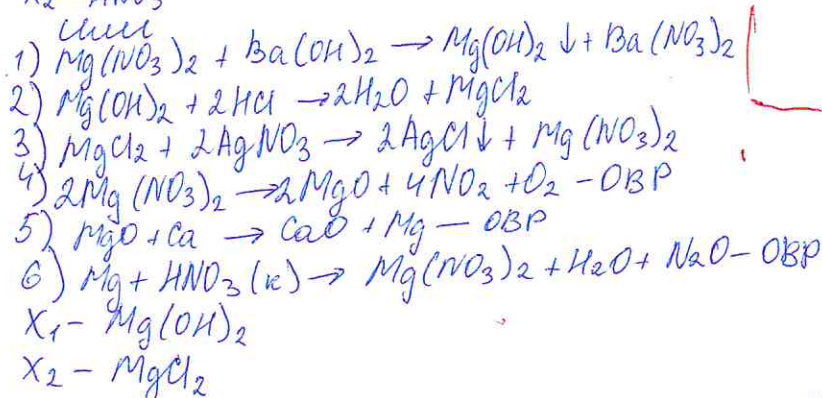 X2 - HNO3
или
1) Mg(NO3)2 + Ba(OH)2 → Mg(OH)2 ↓ + Ba(NO3)2
2) Mg(OH)2 + 2HCl → 2H2O + MgCl2
3) MgCl2 + 2AgNO3 → 2AgCl↓ + Mg(NO3)2
4) 2Mg(NO3)2 → 2MgO + 4NO2 + O2 - ОВР
5) MgO + Ca → CaO + Mg — ОВР
6) Mg + HNO3(к) → Mg(NO3)2 + H2O + N2O - ОВР
X1 - Mg(OH)2
X2 - MgCl2